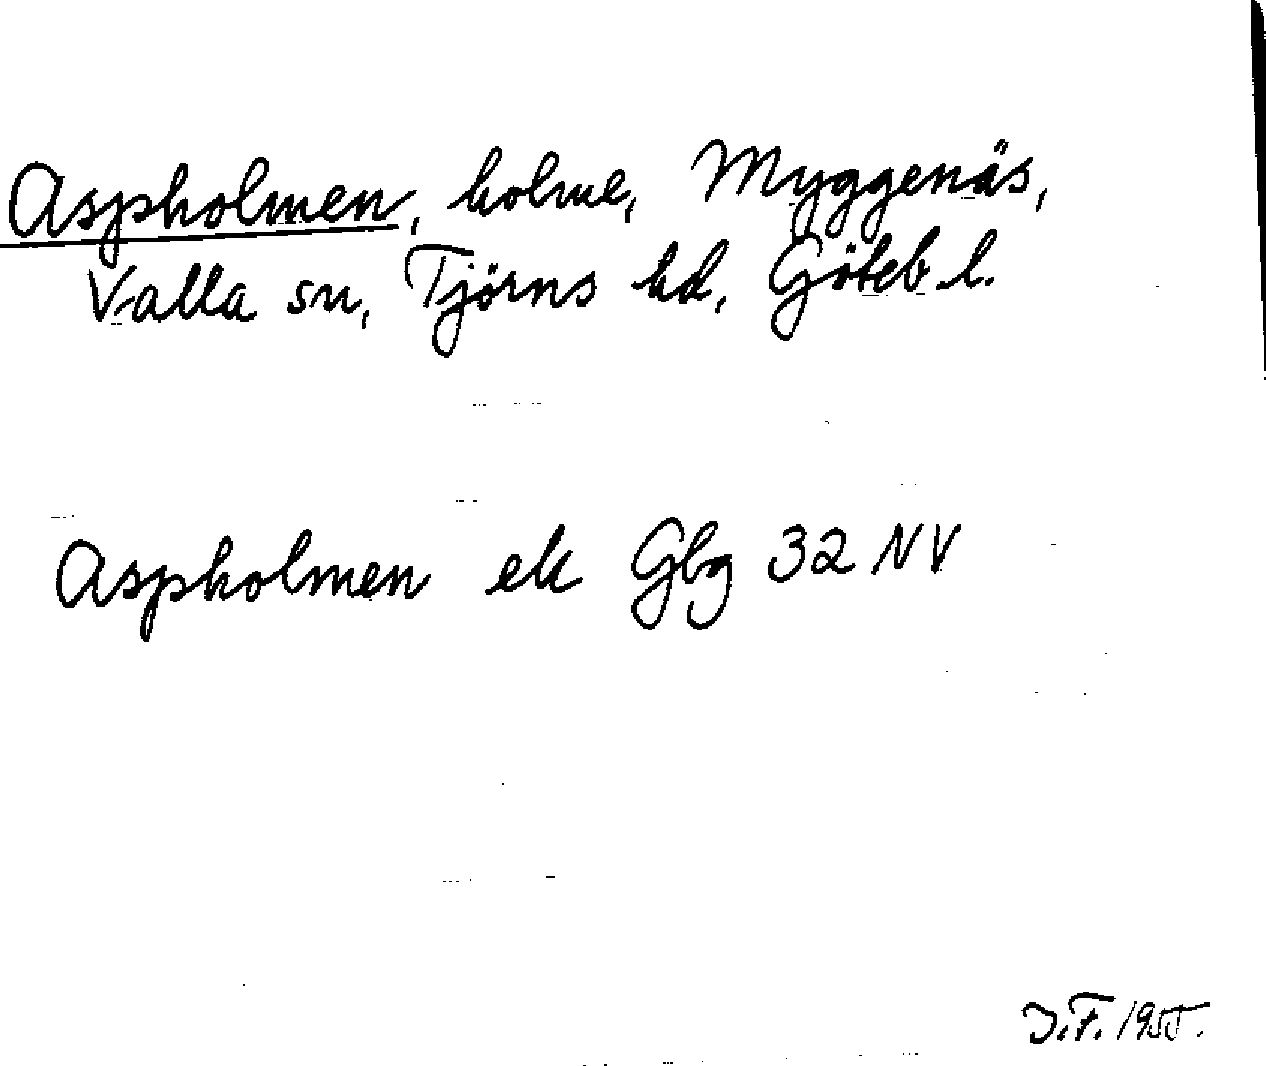 Aspholmen, holme, Myggenäs,
Valla sn, Tjörns hd, Göteb. l.
Aspholmen ek Gbg 32 NV
J.F. 1955.